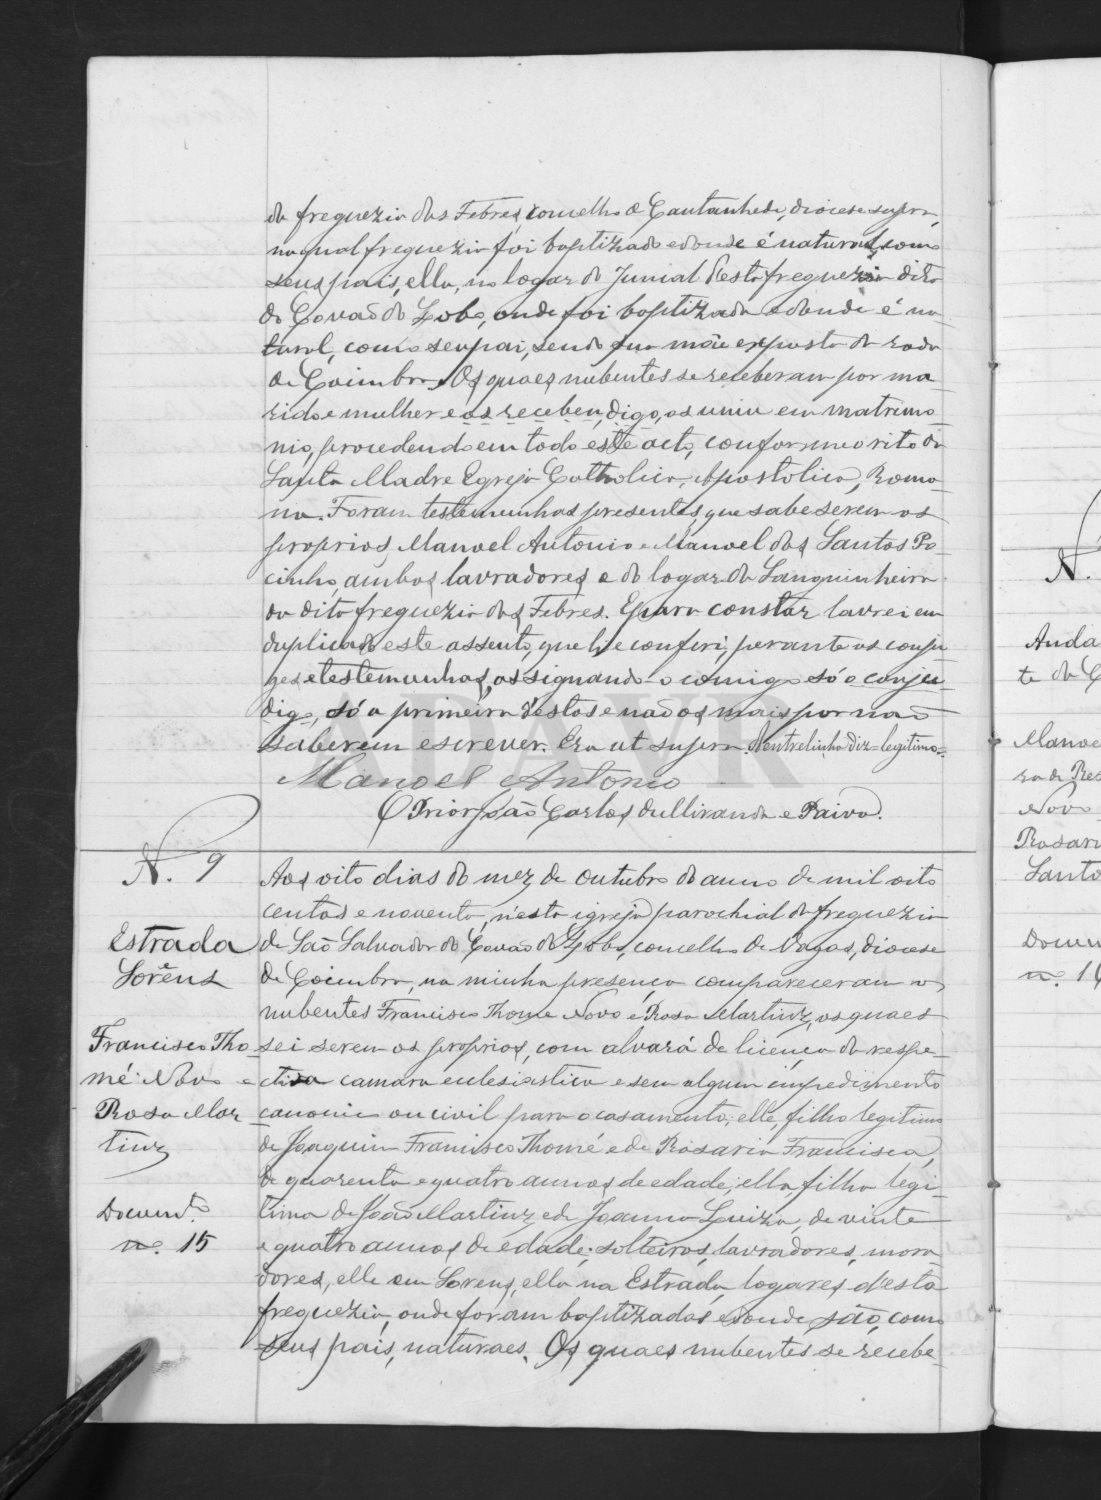 da freguezia das Febres, concelho de Cantanhede, diocese supra,
na qual freguezia foi baptizado e donde é natural, como
seus pais, ella, no logar do Juncal d'esta freguezia dita
do Covão do Lobo, onde foi baptizada e donde é na-
tural, como seu pai, sendo sua mãe exposta da roda
de Coimbra. Os quaes nubentes se receberam por ma-
rido e mulher e os receben, digo, os uniu em matrimo-
nio, procedendo em todo este acto, conforme o rito da
Santa Madre Egreja Catholica, Apostolica, Roma-
na. Foram testemunhas presentes, que sabe serem os
proprios, Manoel Antonio e Manoel dos Santos Po-
cinho, ambos lavradores e do logar da Sanguinheira
da dita freguezia das Febres. E para constar lavrei em
duplicado este assento, que li e conferi, perante os conju-
ges e testemunhas, assignando-o comigo só o conju-
digo, só a primeira d'estas e não os mais por não
saberem escrever. Era ut supra. A entrelinha diz = legitimo =.
Manoel Antonio
O Prior João Carlos de Miranda e Paiva.
N. 9
Estrada
Lorêns
Francisco Tho-
mé Novo e
Rosa Mar-
tinz
Docum.to
n.º 15
Aos oito dias do mez de outubro do anno de mil oito
centos e noventa, n'esta igreja parochial da freguezia
de São Salvador do Covão do Lobo, concelho de Vagos, diocese
de Coimbra, na minha presença compareceram os
nubentes Francisco Thome Novo e Rosa Martinz, os quaes
sei serem os proprios, com alvará de licença da respe-
ctiva camara ecclesiastica e sem algum impedimento
canonico ou civil para o casamento; elle, filho legitimo
de Joaquim Francisco Thomé e de Rosaria Francisca,
de quarenta e quatro annos de edade; ella, filha legi-
tima de João Martinz e de Joanna Luiza, de vinte
e quatro annos de edade; solteiros, lavradores, mora-
dores, elle em Lorens, ella na Estrada, logares d'esta
freguezia, onde foram baptizados e donde são, como
seus pais, naturaes. Os quaes nubentes se recebe-
N.
Anda
te do C
Manoe
ra de Res
Novo
Rosari
Santo
Docum
n.º 16
ADAVR